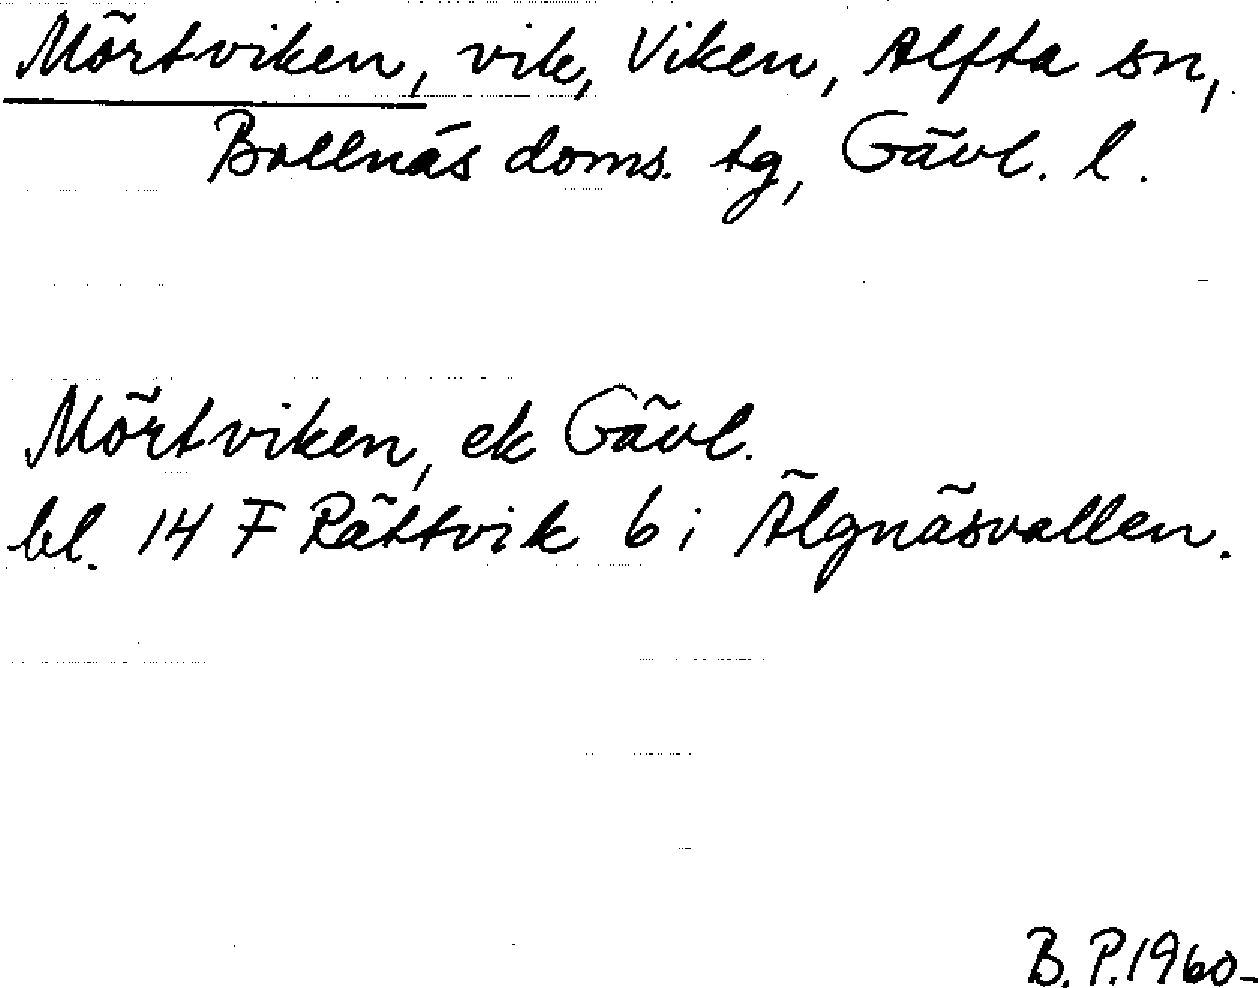 Mörtviken, vik, Viken, Alfta sn,
Bollnäs doms. tg, Gävl. l.
Mörtviken, ek Gävl.
bl. 14 F Rättvik 6 i Älgnäsvallen.
B. P. 1960-